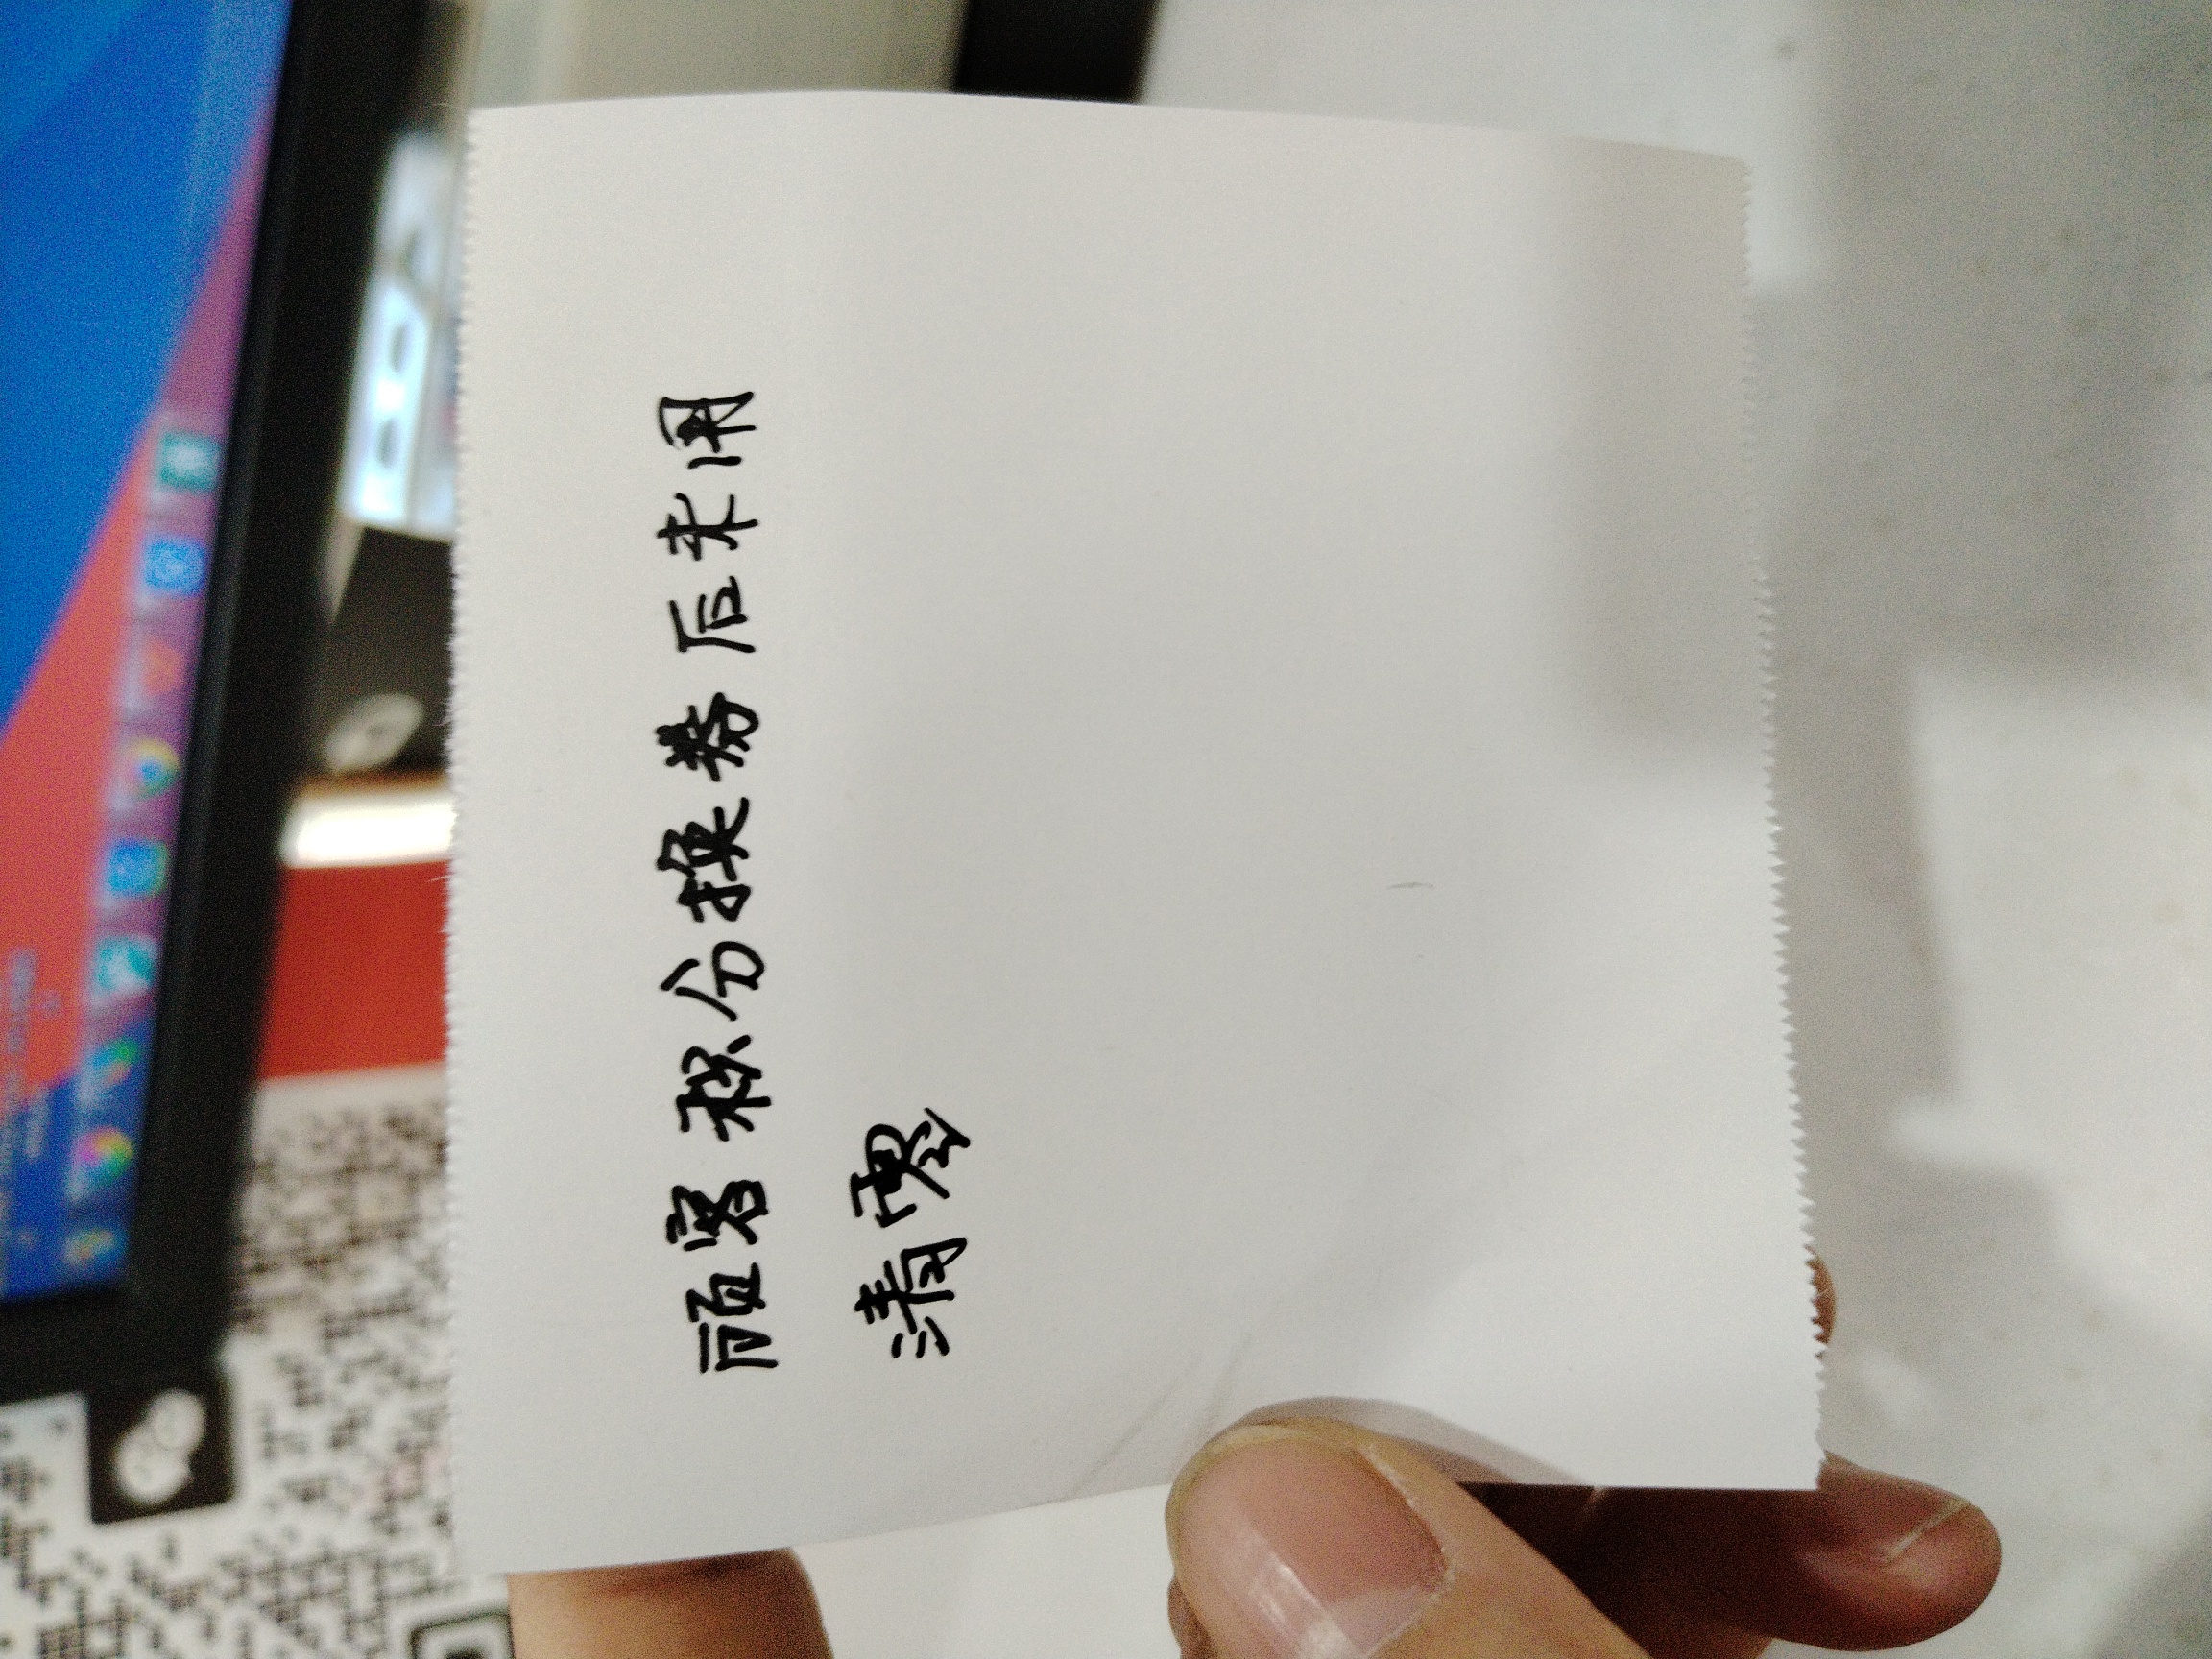 顾客积分换券后未用
清零